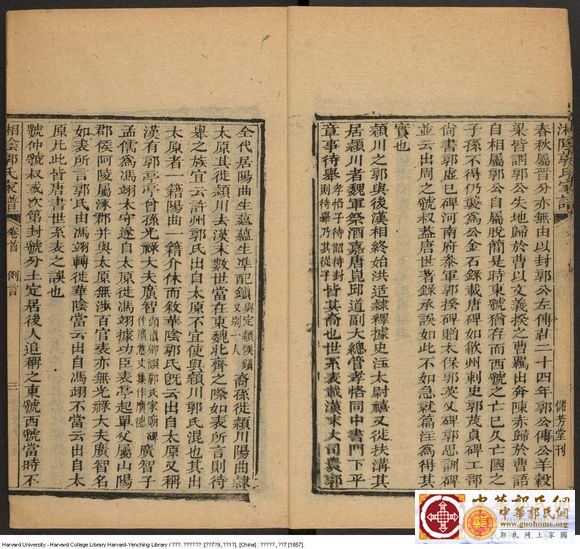 湘陰郭氏家譜
儲芳堂刊
春秋屬晉分亦無由以封郭公左傳莊二十四年郭公傳公羊穀
梁皆謂郭公失地歸於曹以文義揆之曹羈出奔陳赤歸於曹語
自相屬郭公自為脫簡是時東虢猶存而西虢之亡已久亡國之
子孫不得仍繫為公金石錄載唐碑如歙州刺史郭茂貞碑工部
尚書郭虛己碑河南府參軍郭揆碑贈太保郭英乂碑郭思訓碑
並云出周之虢叔蓋唐世著錄承誤如此不如急就篇注為得其
實也
潁川之郭與後漢相終始洪适隸釋據史注太尉禧又徙扶溝其
居潁川者魏軍祭酒嘉唐崑邱道副大總管孝恪同中書門下平
章事待舉孝恪子待詔待封則待舉乃其從子皆其裔也世系表載漢末大司農郭
全代居陽曲生蘊蘊生凖配鎮裔孫徙潁川陽曲隸
太原其徙潁川去漢末數世當在東魏北齊之際如表所言則待
舉之族宜云許州郭氏出自太原不宜使與潁川郭氏混也其出
太原者一籍陽曲一籍介休而敘華陰郭氏旣云出自太原又稱
漢有郭亭亭曾孫光祿大夫廣智廣智子
孟儒為馮翊太守遂自太原徙馮翊據功臣表亭起單父屬山陽
郡侯阿陵屬涿郡並與太原無涉百官表亦無光祿大夫廣智名
如表所言郭氏由馮翊轉徙華陰當云出自馮翊不當云出自太
原凡此皆唐書世系表之誤也
號仲號叔或以次第封號分土定居後人追稱之東號西號當時不
相陰郭氏家譜 卷首 例言 三
中华郭氏网
中華郭氏網
郭氏网上家園
Harvard University - Harvard College Library Harvard-Yenching Library / ???. ??????. [????9, ??1?]. [China] : ?????, ??? [1857].